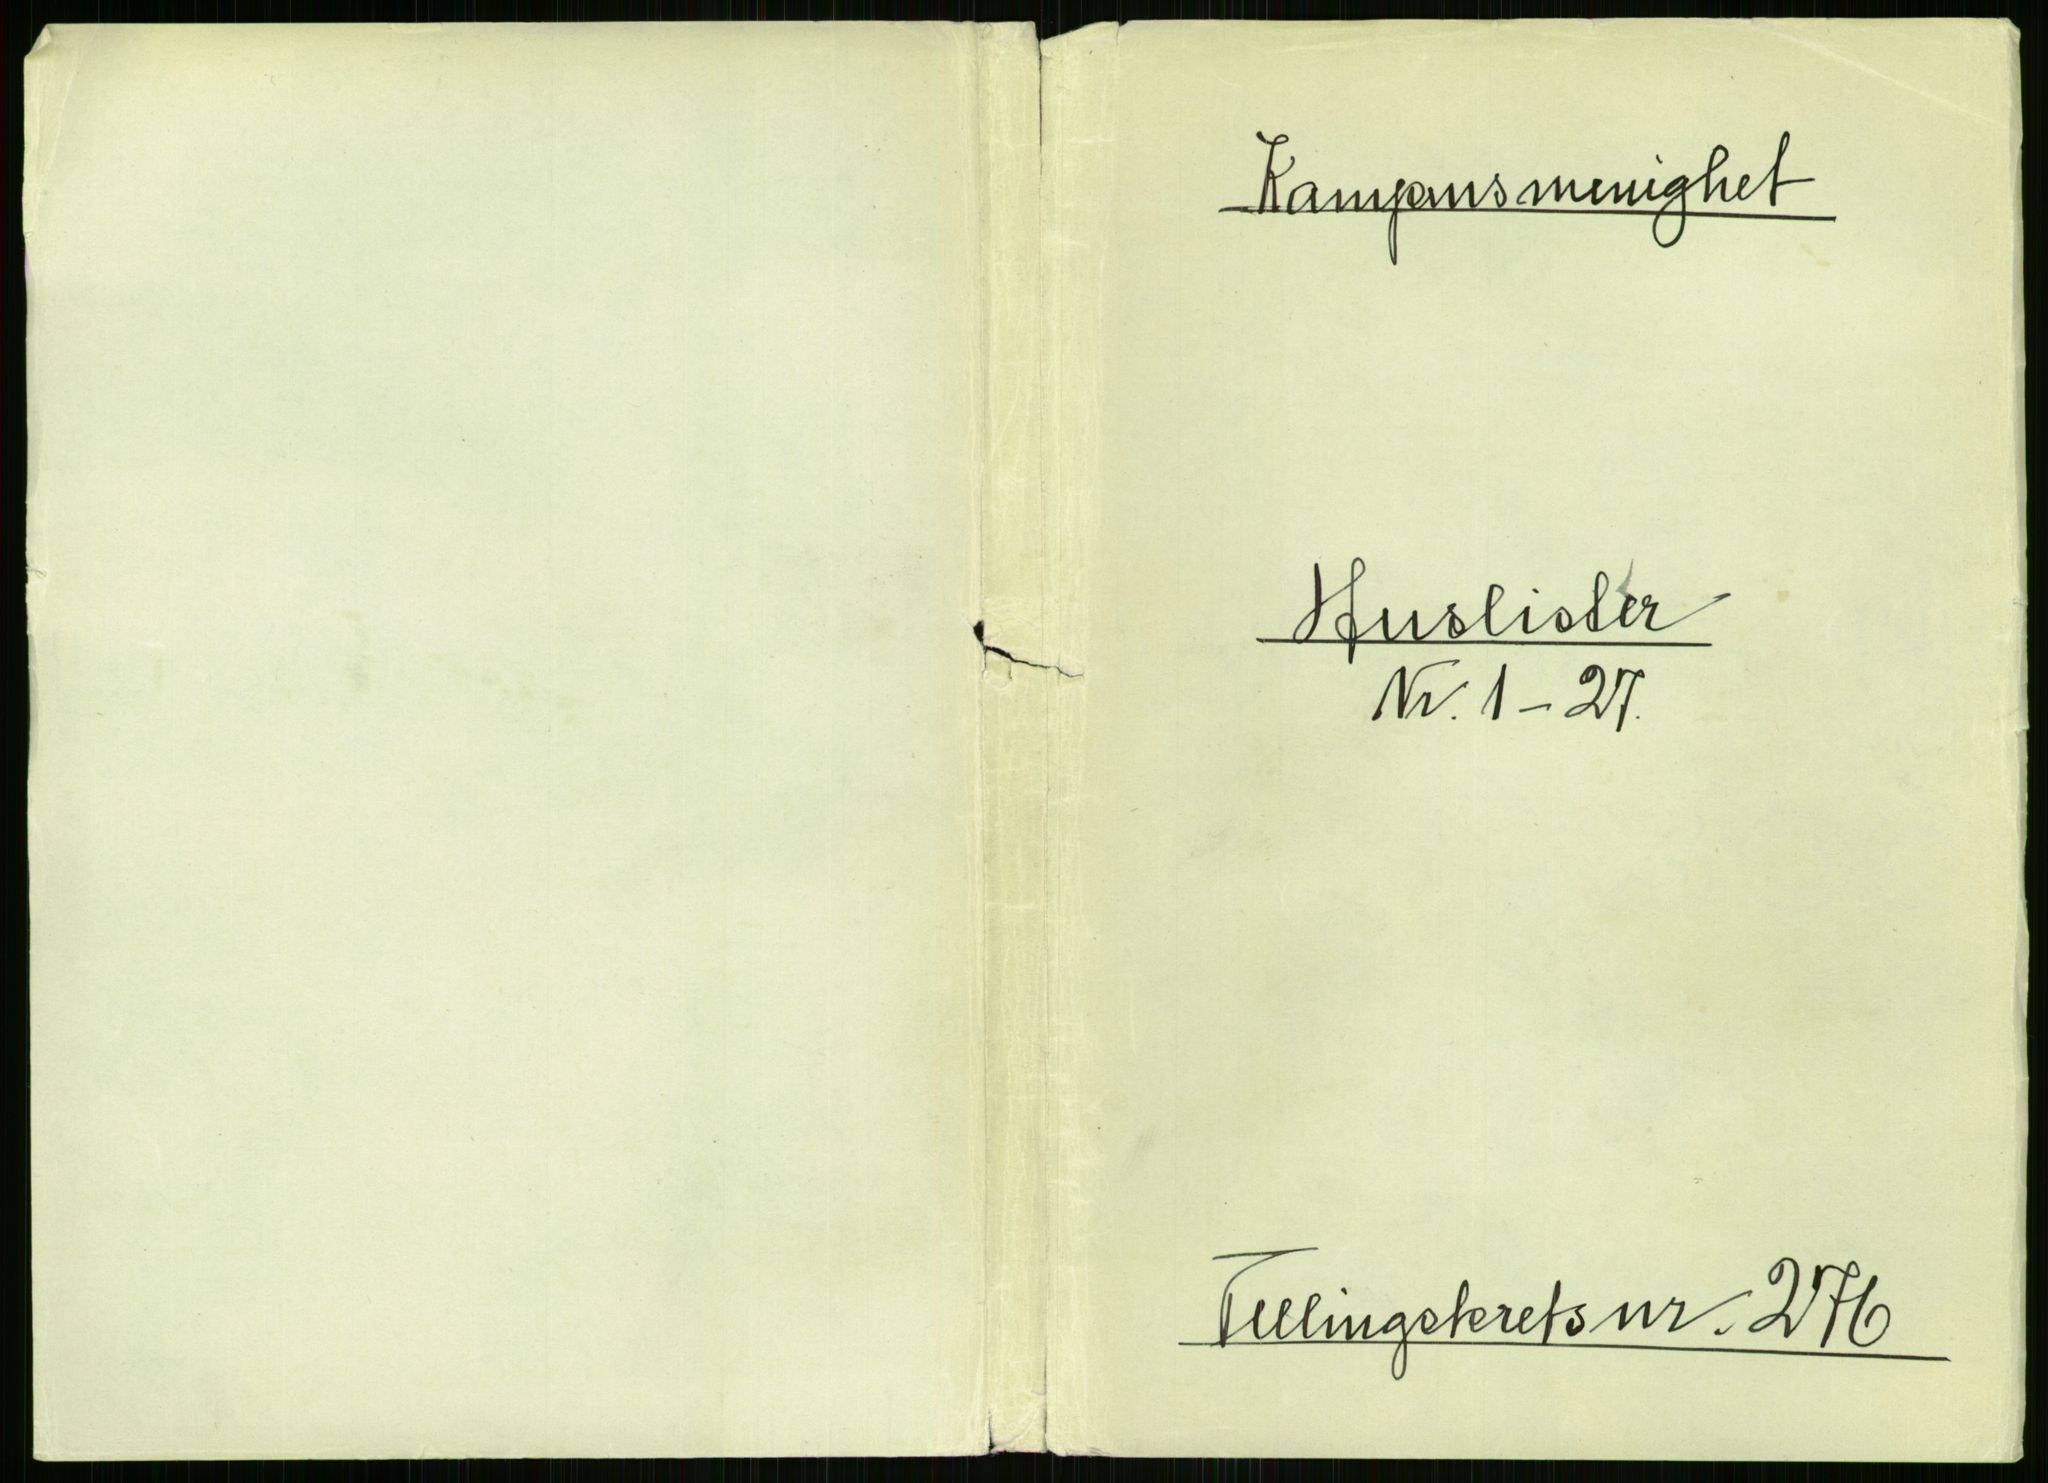 Kampens menighet
Huslister
Nr. 1 - 27.
Tellingskrets nr. 276